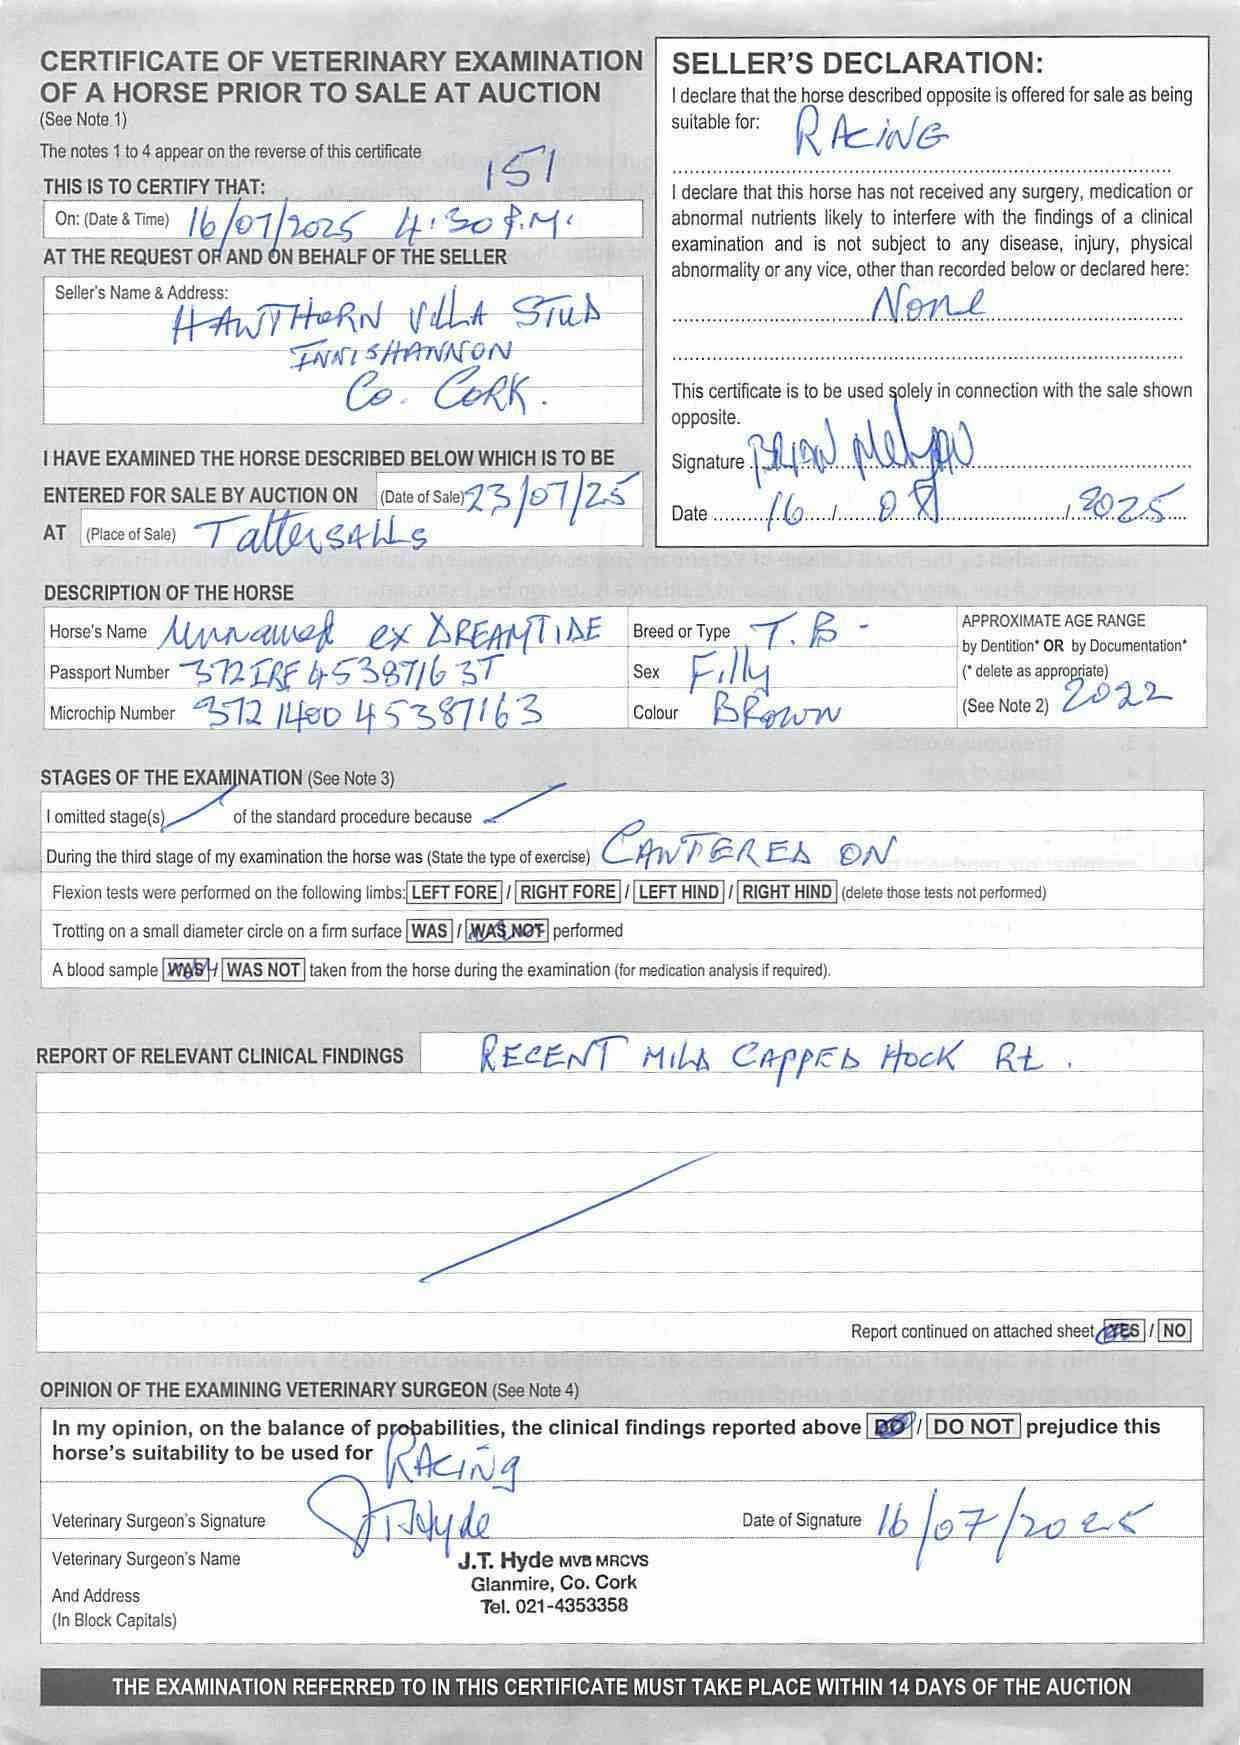 CERTIFICATE OF VETERINARY EXAMINATION
OF A HORSE PRIOR TO SALE AT AUCTION
(See Note 1)
The notes 1 to 4 appear on the reverse of this certificate
151
THIS IS TO CERTIFY THAT:
On: (Date & Time) 16/07/2025 4:30 P.M.
AT THE REQUEST OF AND ON BEHALF OF THE SELLER
Seller's Name & Address:
HAWTHORN VILLA STUD
INNISHANNON
Co. CORK.
I HAVE EXAMINED THE HORSE DESCRIBED BELOW WHICH IS TO BE
ENTERED FOR SALE BY AUCTION ON (Date of Sale) 23/07/25
AT (Place of Sale) TatterSALLS
SELLER'S DECLARATION:
I declare that the horse described opposite is offered for sale as being
suitable for: RACING
I declare that this horse has not received any surgery, medication or
abnormal nutrients likely to interfere with the findings of a clinical
examination and is not subject to any disease, injury, physical
abnormality or any vice, other than recorded below or declared here:
None
This certificate is to be used solely in connection with the sale shown
opposite.
Signature BRIAN
Date 16 / / 2025
DESCRIPTION OF THE HORSE
Horse's Name Unnamed ex DREAMTIDE
Breed or Type T.B-
APPROXIMATE AGE RANGE
by Dentition* OR by Documentation*
(* delete as appropriate)
(See Note 2) 2022
Passport Number 372IRE45387163T
Sex Filly
Microchip Number 372140045387163
Colour BROWN
STAGES OF THE EXAMINATION (See Note 3)
I omitted stage(s) of the standard procedure because
During the third stage of my examination the horse was (State the type of exercise) CANTERED ON
Flexion tests were performed on the following limbs: LEFT FORE / RIGHT FORE / LEFT HIND / RIGHT HIND (delete those tests not performed)
Trotting on a small diameter circle on a firm surface WAS / WAS NOT performed
A blood sample WAS / WAS NOT taken from the horse during the examination (for medication analysis if required).
REPORT OF RELEVANT CLINICAL FINDINGS RECENT MILD CAPPED HOCK Rt.
Report continued on attached sheet YES / NO
OPINION OF THE EXAMINING VETERINARY SURGEON (See Note 4)
In my opinion, on the balance of probabilities, the clinical findings reported above DO / DO NOT prejudice this
horse's suitability to be used for RACING
Veterinary Surgeon's Signature JT Hyde
Date of Signature 16/07/2025
Veterinary Surgeon's Name
And Address
(In Block Capitals)
J.T. Hyde MVB MRCVS
Glanmire, Co. Cork
Tel. 021-4353358
THE EXAMINATION REFERRED TO IN THIS CERTIFICATE MUST TAKE PLACE WITHIN 14 DAYS OF THE AUCTION